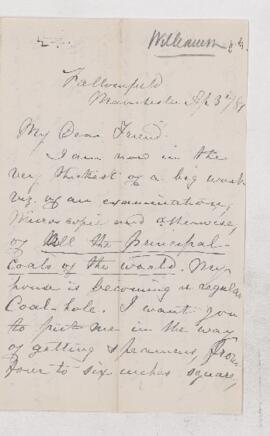 Williamson
Fallowfield
Manchester
My Dear Friend.
I am now in the
very thickest of a big work
viz. of an examination,
Microscopic and otherwise,
of all the principal
Coals of the world. My
house is becoming a regular
Coal-hole. I want you
to put me in the way
of getting specimens, From
four to six inches square,